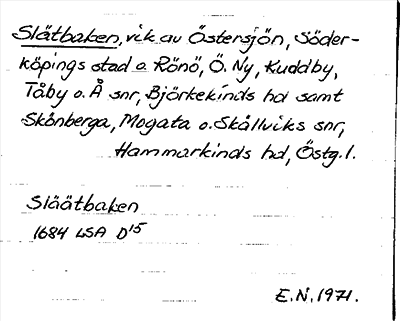 Slätbaken, vik av Östersjön, Söder-
köpings stad o. Rönö, Ö. Ny, Kuddby,
Tåby o. Å snr, Björkekinds hd samt
Skönberga, Mogata o. Skällviks snr,
Hammarkinds hd, Östg. l.
Släätbaken
1684 LSA D15
E.N. 1971.